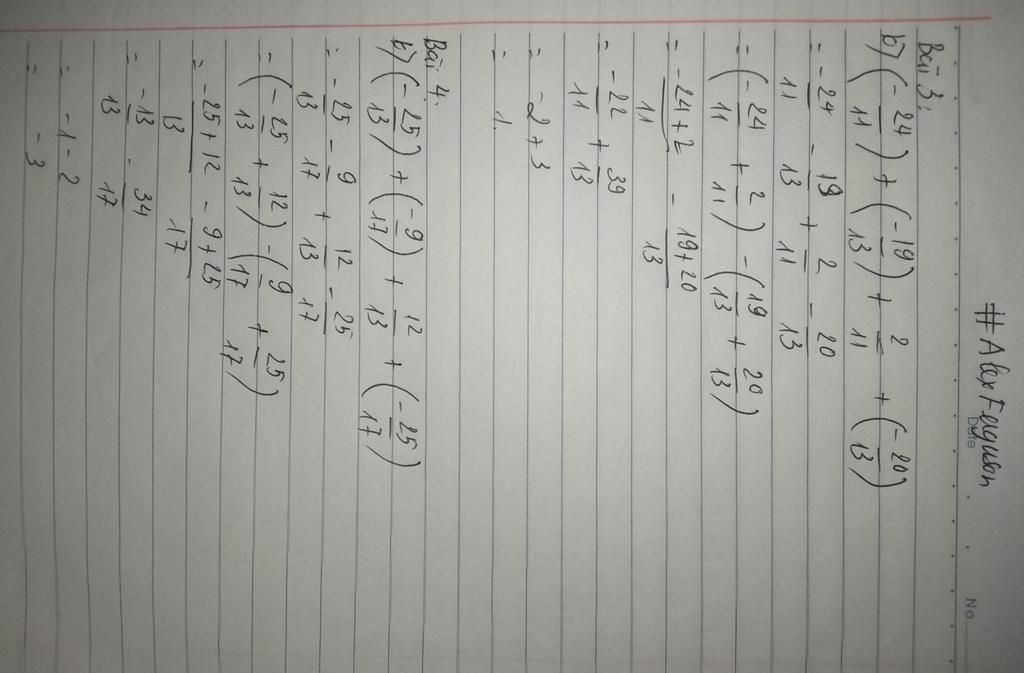 #AlexFerguson
Date
No
Bài 3:
b) (-24/11) + (-19/13) + 2/11 + (-20/13)
= -24/11 - 19/13 + 2/11 - 20/13
= (-24/11 + 2/11) - (19/13 + 20/13)
= -24+2/11 - 19+20/13
= -22/11 + 39/13
= -2+3
= 1.
Bài 4.
b) (-25/13) + (-9/17) + 12/13 + (-25/17)
= -25/13 - 9/17 + 12/13 - 25/17
= (-25/13 + 12/13) - (9/17 + 25/17)
= -25+12/13 - 9+25/17
= -13/13 - 34/17
= -1-2
= -3